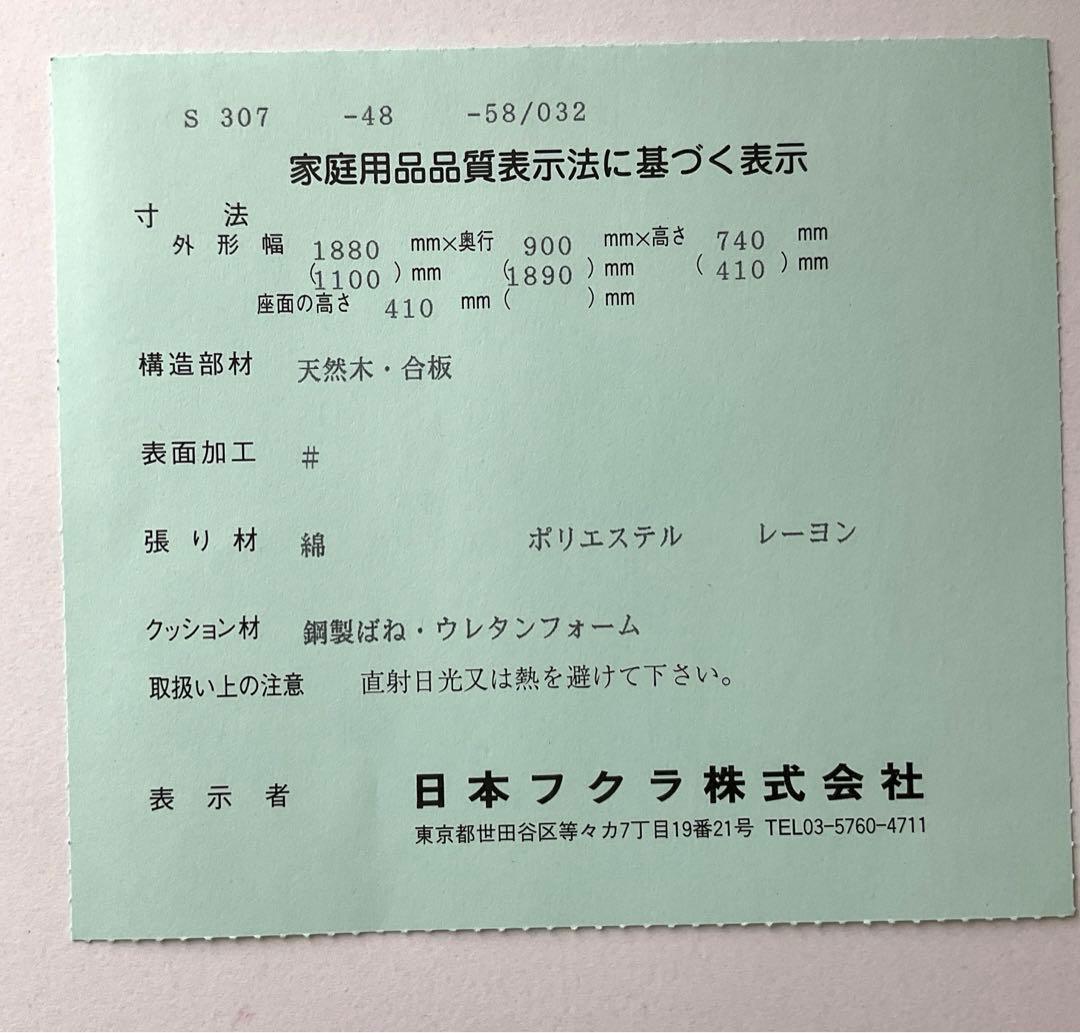 S 307 -48 -58/032
家庭用品品質表示法に基づく表示
寸 法
外 形 幅 1880 mm×奥行 900 mm×高さ 740 mm
(1100 ) mm (1890 ) mm ( 410 ) mm
座面の高さ 410 mm ( ) mm
構造部材 天然木・合板
表面加工 #
張 り 材 綿 ポリエステル レーヨン
クッション材 鋼製ばね・ウレタンフォーム
取扱い上の注意 直射日光又は熱を避けて下さい。
表 示 者 日本フクラ株式会社
東京都世田谷区等々力7丁目19番21号 TEL03-5760-4711